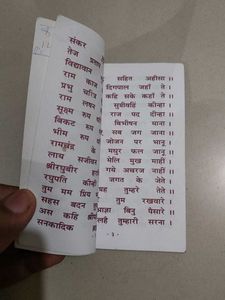 संकर
तेज प्रताप
विद्यावान
राम काज
प्रभु चरित्र
राम लषन
सूक्ष्म रूप
बिकट रूप
भीम रूप
रामचंद्र के
लाय सजीवन
श्रीरघुबीर
रघुपति कीन्ही
तुम मम प्रिय
सहस बदन
अस कहि श्रीप
सनकादिक
सहित अहीसा ॥
दिगपाल जहाँ ते ।
कहि सके कहाँ ते ॥
सुग्रीवहिं कीन्हा ।
राज पद दीन्हा ॥
बिभीषन माना ।
सब जग जाना ॥
जोजन पर भानू ।
मधुर फल जानू ॥
मेलि मुख माहीं ।
गये अचरज नाहीं ॥
जगत के जेते ।
तुम्हरे तेते ॥
तुम रखवारे ।
आज्ञा बिनु पैसारे ॥
लहै तुम्हारी सरना ।
- ३ -